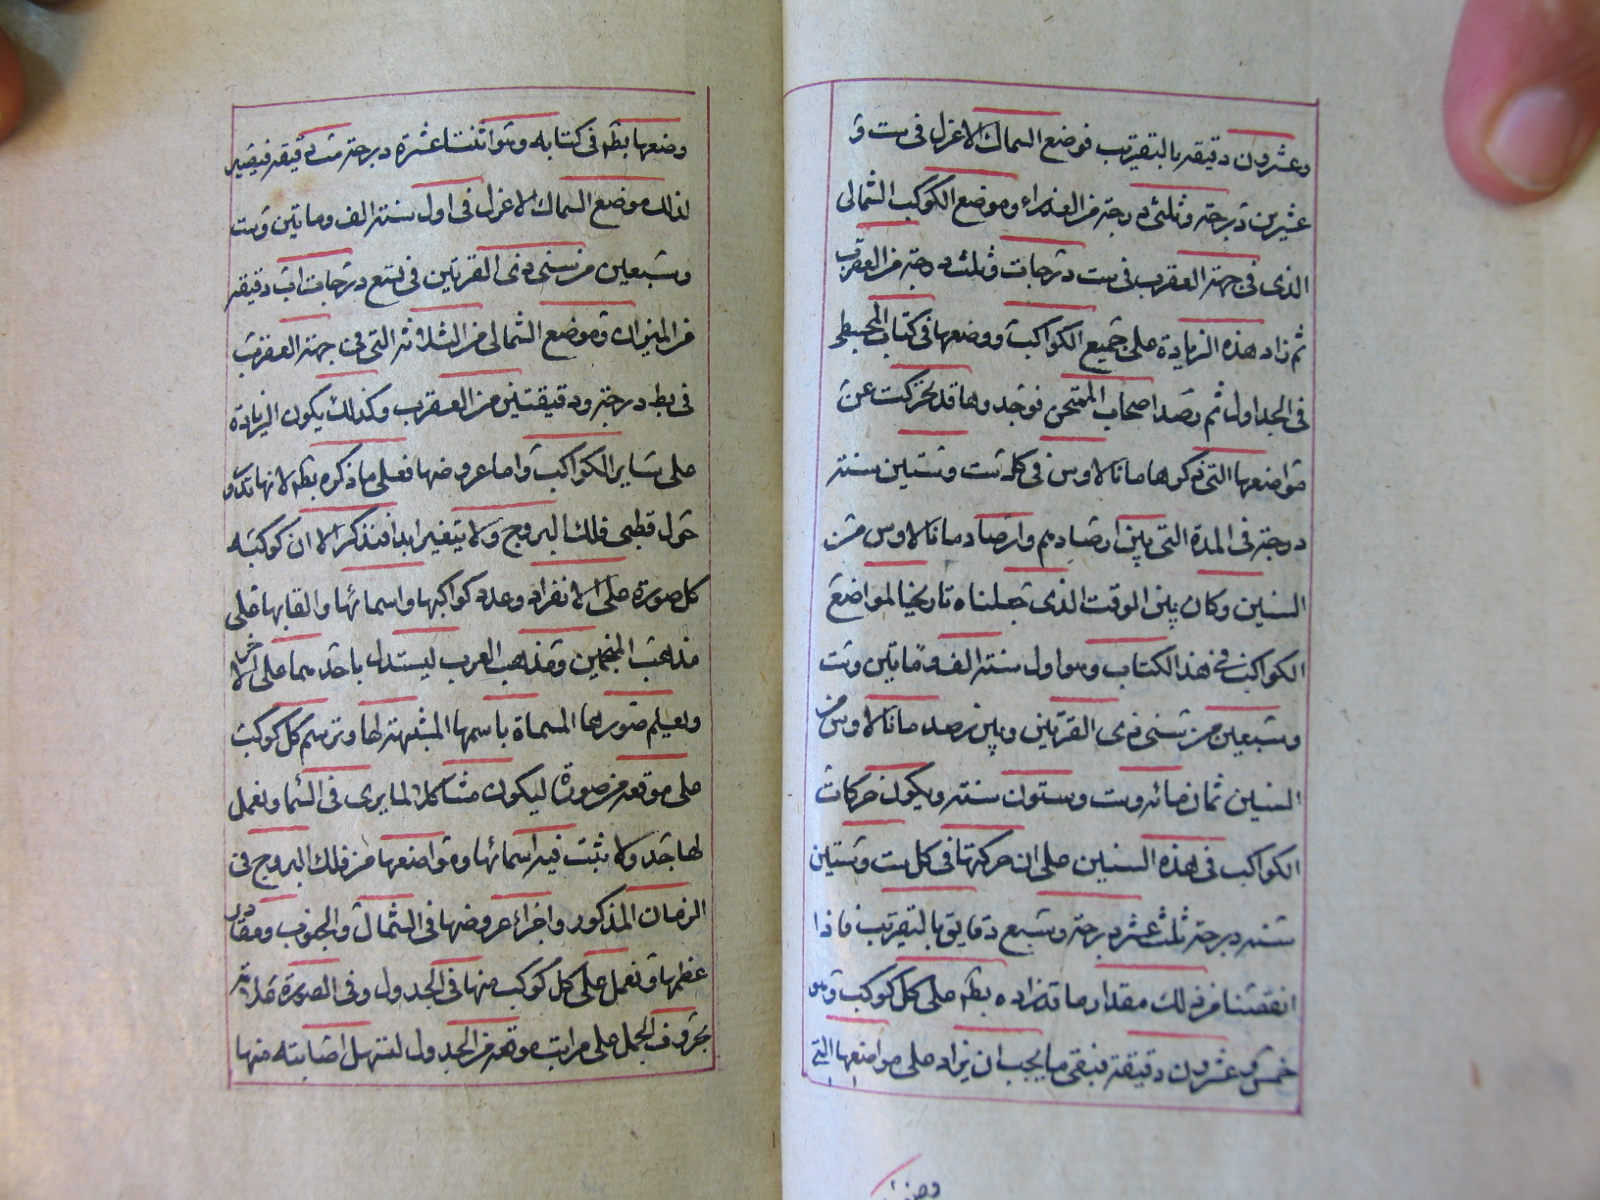 وعشرون دقيقة بالتقريب فوضع السماك الاعزل فى ست و
عشرين درجة وثلثى درجة من العذراء وموضع الكوكب الشمالى
الذى فى جهة العقرب فى ست درجات وثلث درجة من العقرب
ثم زاد هذه الزيادة على جميع الكواكب ووضعها فى كتاب المجسطى
فى الجداول ثم رصد اصحاب الممتحن فوجدوها قد تحركت عن
مواضعها التى ذكرها مانالاوس فى كل ست وستين سنة
درجة فى المدة التى بين ارصادهم وارصاد مانالاوس من
السنين وكان بين الوقت الذى جعلناه تاريخا لمواضع
الكواكب فى هذا الكتاب وهو اول سنة الف وماتين وست
وسبعين من سنى ذى القرنين وبين رصد مانالاوس من
السنين ثمان مائه وست وستون سنة ويكون حركات
الكواكب فى هذه السنين على ان حركتها فى كل ست وستين
سنة درجة ثلث عشر درجة وسبع دقايق بالتقريب فاذا
انقصنا من ذلك مقدار ما قد زاده بطه على كل كوكب وهو
خمس وعشرون دقيقة فبقى ما يجب ان يزاد على مواضعها التى
وضعها
وضعها بطه فى كتابه وهو اثنتا عشرة درجة دقيقة فيصير
لذلك موضع السماك الاعزل فى اول سنة الف وماتين وست
وسبعين من سنى ذى القرنين فى تسع درجات دقيقة
من الميزان وموضع الشمالى من الثلاثة التى فى جهة العقرب
فى يط درجة ودقيقتين من العقرب وكذلك يكون الزيادة
على ساير الكواكب واما عروضها فعلى ما ذكره بطه لانها
حول قطبى فلك البروج ولا يتغير ابدا فنذكر الان كوكبه
كل صورة على الانفراد وعدد كواكبها واسمائها والقابها على
مذهب المنجمين ومذهب العرب ليستدل باحديهما على الاخر
ويعلم صورها المسماة باسمها المشبهة لها ونرسم كل كوكب
على موقعه من صورة ليكون مشاكلا لما يرى فى السما ونعمل
لها جدولا نثبت فيه اسمائها ومواضعها من فلك البروج فى
الزمان المذكور واجزاء عروضها فى الشمال والجنوب ومقدار
عظمها ونعمل على كل كوكب منها فى الجدول وفى الصورة علامة
بحروف الجمل على مراتب موقعه من الجدول لتسهل اصابته منها